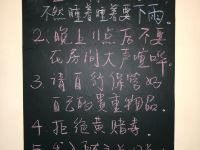 不然睡着睡着要下雨。
2.晚上11点后不要
在房间大声喧哗。
3.请自行保管好
自己的贵重物品。
4.拒绝黄赌毒。